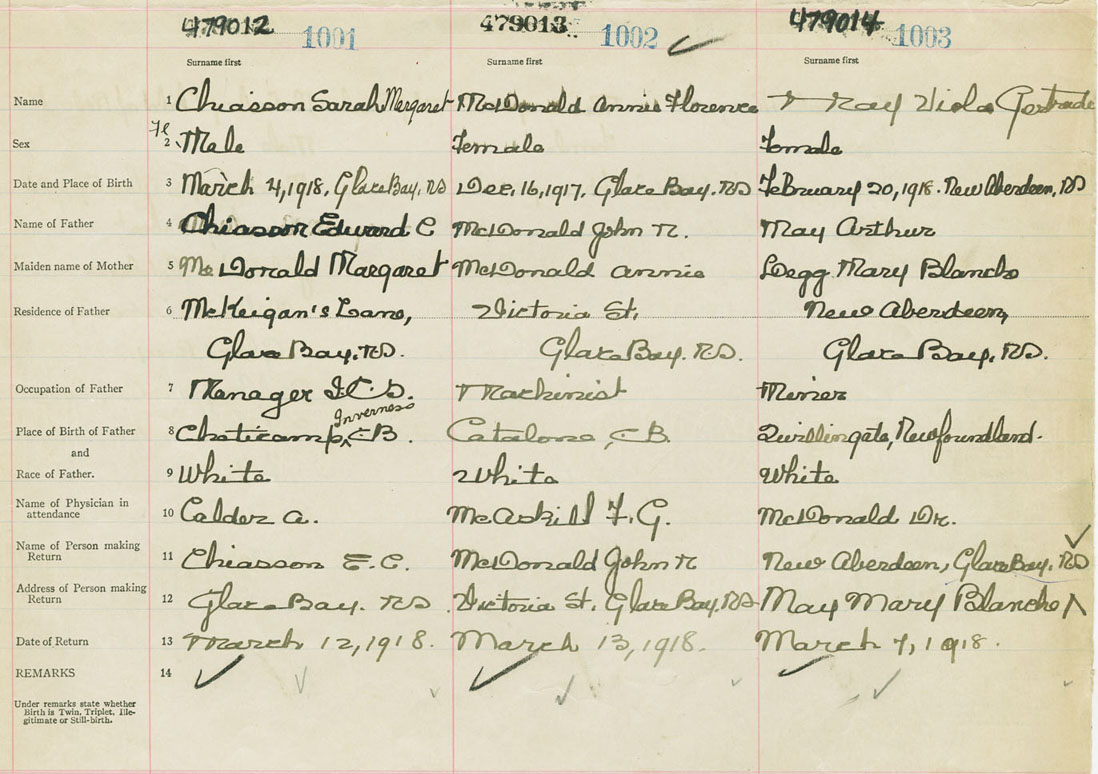 479012 1001 479013 1002 479014 1003
Surname first Surname first Surname first
Name 1 Chiasson Sarah Margaret McDonald Annie Florence May Viola Gertrude
Fe
Sex 2 Male Female Female
Date and Place of Birth 3 March 4, 1918, Glace Bay, NS Dec. 16, 1917, Glace Bay. NS February 20, 1918. New Aberdeen, NS
Name of Father 4 Chiasson Edward C McDonald John R. May Arthur
Maiden name of Mother 5 McDonald Margaret McDonald Annie Legg Mary Blanche
Residence of Father 6 McKeigan's Lane, Victoria St, New Aberdeen,
Glace Bay. NS. Glace Bay. NS. Glace Bay, NS.
Occupation of Father 7 Manager Machinist Miner
Inverness
Place of Birth of Father 8 Cheticamp, CB. Catalone, CB. Twillingate, Newfoundland.
and
Race of Father. 9 White White White
Name of Physician in
attendance 10 Calder A. McAskill F. G. McDonald Dr.
Name of Person making
Return 11 Chiasson E. C. McDonald John R New Aberdeen, Glace Bay. NS
Address of Person making
Return 12 Glace Bay. NS. Victoria St, Glace Bay, NS May Mary Blanche
Date of Return 13 March 12, 1918. March 13, 1918. March 7, 1918.
REMARKS 14
Under remarks state whether
Birth is Twin, Triplet, Ille-
gitimate or Still-birth.